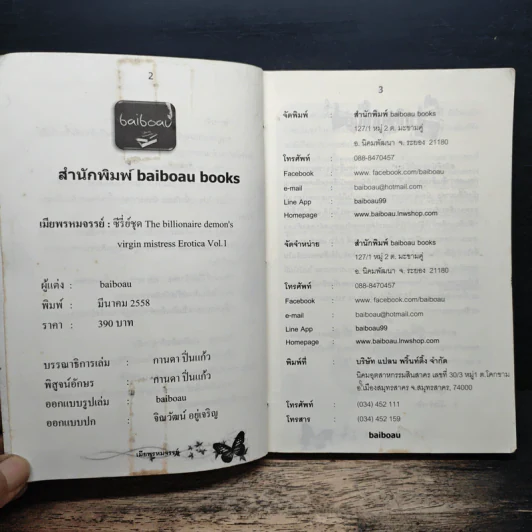 2
baiboau
สำนักพิมพ์ baiboau books
เมียพรหมจรรย์ : ซีรี่ย์ชุด The billionaire demon's
virgin mistress Erotica Vol.1
ผู้แต่ง : baiboau
พิมพ์ : มีนาคม 2558
ราคา : 390 บาท
บรรณาธิการเล่ม : กานดา ปิ่นแก้ว
พิสูจน์อักษร : กานดา ปิ่นแก้ว
ออกแบบรูปเล่ม : baiboau
ออกแบบปก : จิณวัฒน์ อยู่เจริญ
เมียพรหมจรรย์
3
จัดพิมพ์ : สำนักพิมพ์ baiboau books
127/1 หมู่ 2 ต. มะขามคู่
อ. นิคมพัฒนา จ. ระยอง 21180
โทรศัพท์ : 088-8470457
Facebook : www. facebook.com/baiboau
e-mail : baiboau@hotmail.com
Line App : baiboau99
Homepage : www.baiboau.lnwshop.com
จัดจำหน่าย : สำนักพิมพ์ baiboau books
127/1 หมู่ 2 ต. มะขามคู่
อ. นิคมพัฒนา จ. ระยอง 21180
โทรศัพท์ : 088-8470457
Facebook : www. facebook.com/baiboau
e-mail : baiboau@hotmail.com
Line App : baiboau99
Homepage : www.baiboau.lnwshop.com
พิมพ์ที่ : บริษัท แปลน พริ้นท์ติ้ง จำกัด
นิคมอุตสาหกรรมสินสาคร เลขที่ 30/3 หมู่1 ต.โคกขาม
อ.เมืองสมุทรสาคร จ.สมุทรสาคร, 74000
โทรศัพท์ : (034) 452 111
โทรสาร : (034) 452 159
baiboau